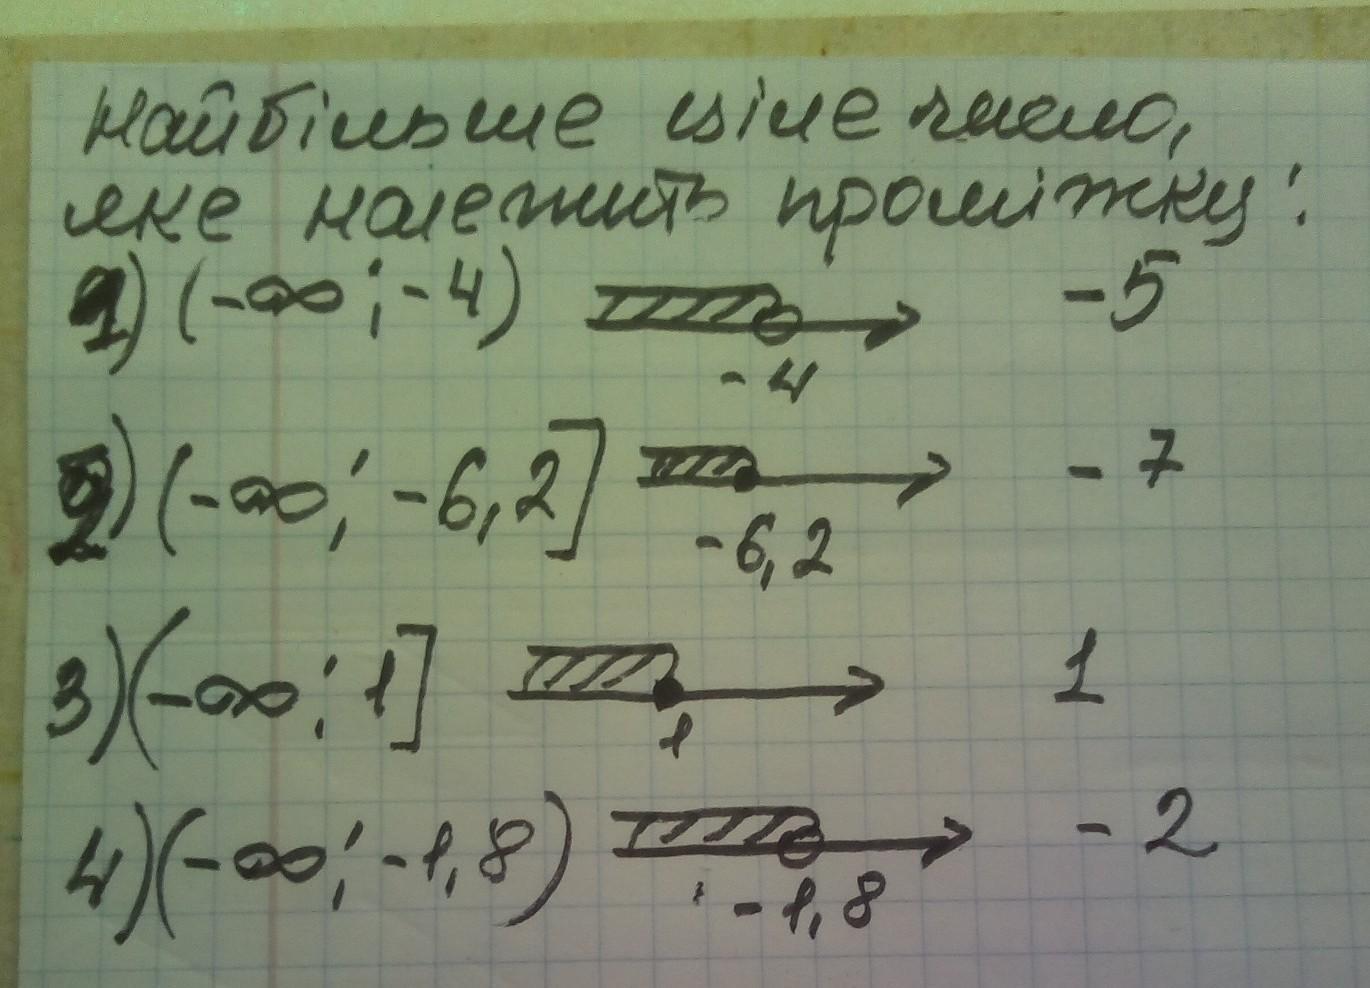 Найбільше ціле число,
яке належить проміжку:
1) (-∞; -4) -4 -5
2) (-∞; -6,2] -6,2 -7
3) (-∞; 1] 1 1
4) (-∞; -1,8) -1,8 -2